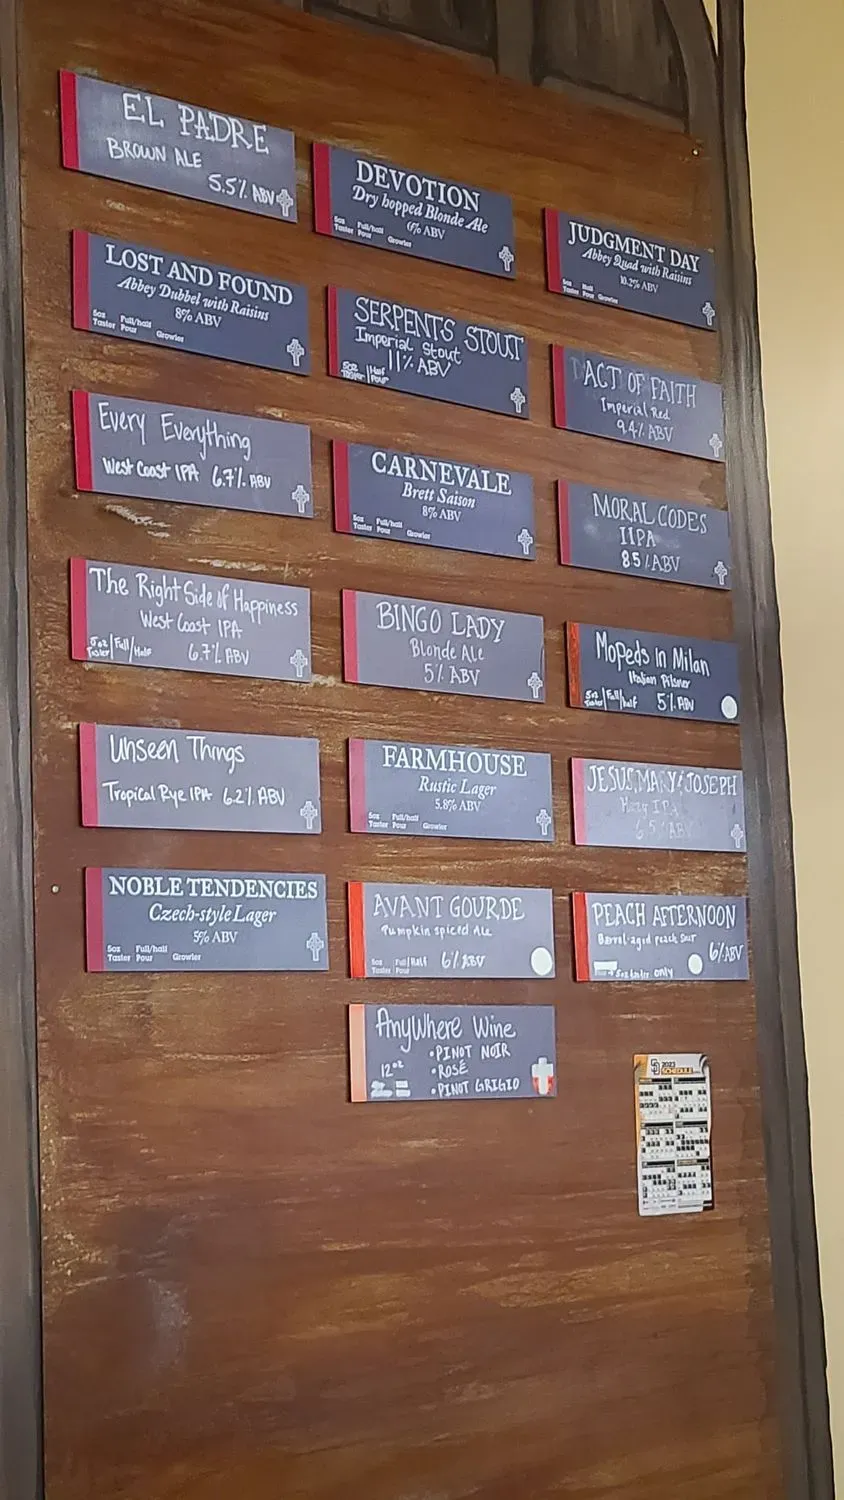 EL PADRE
BROWN ALE
5.5% ABV
LOST AND FOUND
Abbey Dubbel with Raisins
8% ABV
5oz Full/half
Taster Pour Growler
Every Everything
West Coast IPA 6.7% ABV
The Right Side of Happiness
West Coast IPA
5oz Taster/Full/Half 6.7% ABV
Unseen Things
Tropical Rye IPA 6.2% ABV
NOBLE TENDENCIES
Czech-style Lager
5% ABV
5oz Full/half
Taster Pour Growler
DEVOTION
Dry hopped Blonde Ale
6% ABV
5oz Full/half
Taster Pour Growler
SERPENTS STOUT
Imperial Stout
11% ABV
5oz Half
Taster Pour
CARNEVALE
Brett Saison
8% ABV
5oz Full/half
Taster Pour Growler
BINGO LADY
Blonde Ale
5% ABV
FARMHOUSE
Rustic Lager
5.8% ABV
5oz Full/half
Taster Pour Growler
AVANT GOURDE
Pumpkin spiced Ale
5oz Full/Half 6% ABV
Taster Pour
AnyWhere Wine
• PINOT NOIR
12oz • ROSÉ
• PINOT GRIGIO
JUDGMENT DAY
Abbey Quad with Raisins
10.2% ABV
5oz Half
Taster Pour Growler
ACT OF FAITH
Imperial Red
9.4% ABV
MORAL CODES
IIPA
8.5% ABV
Mopeds in Milan
Italian Pilsner
5oz Taster Full/half 5% ABV
JESUS, MARY & JOSEPH
Hazy IPA
6.5% ABV
PEACH AFTERNOON
Barrel-aged peach sour
6% ABV
5oz taster only
SD 2023
SCHEDULE